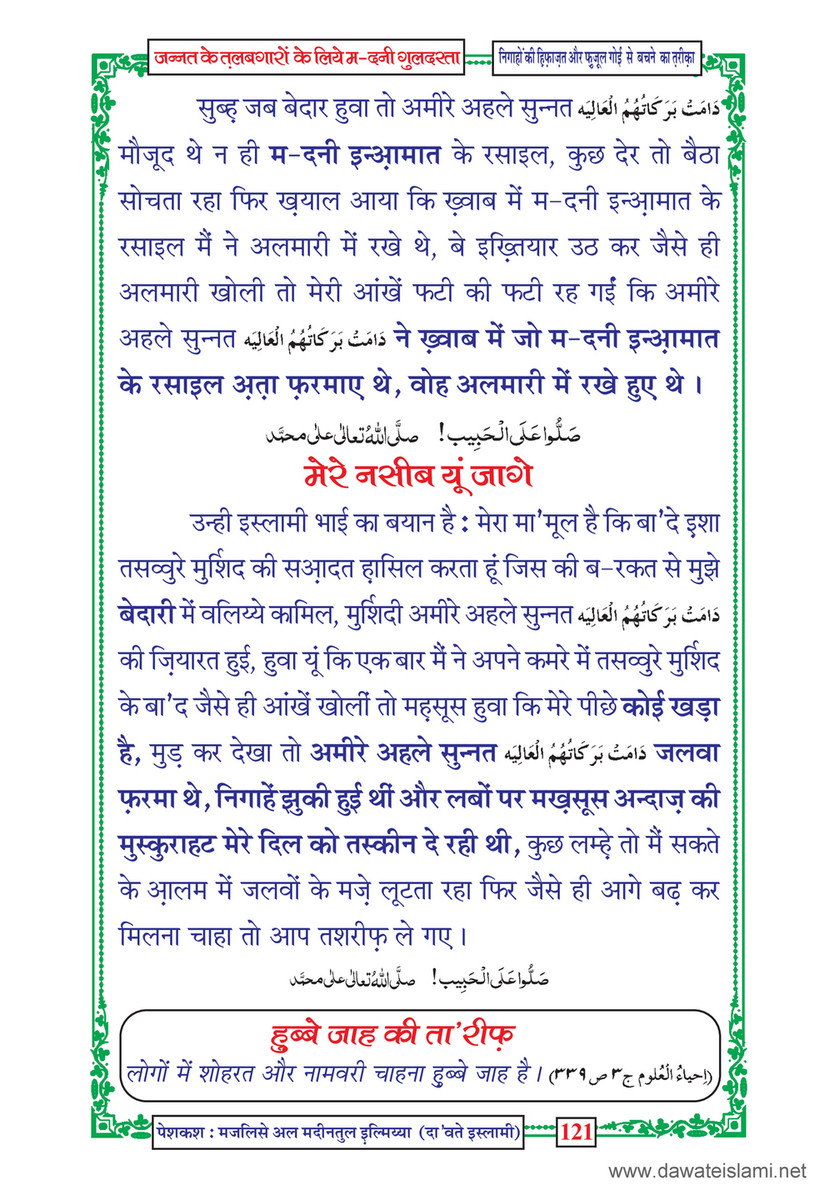 जन्नत के त़लबगारों के लिये म-दनी गुलदस्ता
निगाहों की ह़िफ़ाज़त और फ़ुज़ूल गोई से बचने का त़रीक़ा
सुब्ह़ जब बेदार हुवा तो अमीरे अहले सुन्नत دَامَتْ بَرَكَاتُهُمُ الْعَالِيَه
मौजूद थे न ही म-दनी इन्आ़मात के रसाइल, कुछ देर तो बैठा
सोचता रहा फिर ख़याल आया कि ख़्वाब में म-दनी इन्आ़मात के
रसाइल मैं ने अलमारी में रखे थे, बे इख़्तियार उठ कर जैसे ही
अलमारी खोली तो मेरी आंखें फटी की फटी रह गईं कि अमीरे
अहले सुन्नत دَامَتْ بَرَكَاتُهُمُ الْعَالِيَه ने ख़्वाब में जो म-दनी इन्आ़मात
के रसाइल अ़त़ा फ़रमाए थे, वोह अलमारी में रखे हुए थे ।
صَلُّوا عَلَى الْحَبِيب! صلَّى اللهُ تعالٰى على محمَّد
मेरे नसीब यूं जागे
उन्ही इस्लामी भाई का बयान है : मेरा मा'मूल है कि बा'दे इ़शा
तसव्वुरे मुर्शिद की सआ़दत ह़ासिल करता हूं जिस की ब-रकत से मुझे
बेदारी में वलिय्ये कामिल, मुर्शिदी अमीरे अहले सुन्नत دَامَتْ بَرَكَاتُهُمُ الْعَالِيَه
की ज़ियारत हुई, हुवा यूं कि एक बार मैं ने अपने कमरे में तसव्वुरे मुर्शिद
के बा'द जैसे ही आंखें खोलीं तो मह़सूस हुवा कि मेरे पीछे कोई खड़ा
है, मुड़ कर देखा तो अमीरे अहले सुन्नत دَامَتْ بَرَكَاتُهُمُ الْعَالِيَه जलवा
फ़रमा थे, निगाहें झुकी हुई थीं और लबों पर मख़्सूस अन्दाज़ की
मुस्कुराहट मेरे दिल को तस्कीन दे रही थी, कुछ लम्ह़े तो मैं सकते
के आ़लम में जलवों के मज़े लूटता रहा फिर जैसे ही आगे बढ़ कर
मिलना चाहा तो आप तशरीफ़ ले गए ।
صَلُّوا عَلَى الْحَبِيب! صلَّى اللهُ تعالٰى على محمَّد
हु़ब्बे जाह की ता'रीफ़
लोगों में शोहरत और नामवरी चाहना हु़ब्बे जाह है । (اِحياءُ الْعُلوم ج۳ ص۳۳۹)
पेशकश : मजलिसे अल मदीनतुल इ़ल्मिय्या (दा'वते इस्लामी)
121
www.dawateislami.net